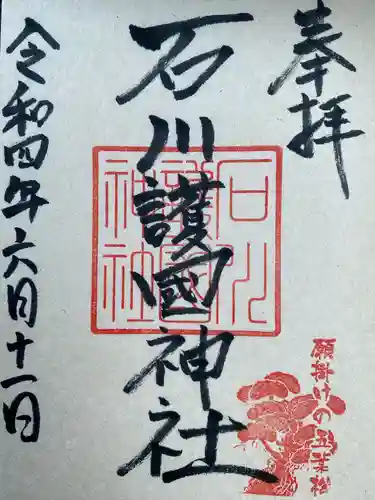 奉拝
石川護國神社
石川護國神社
願掛けの五葉松
令和四年六月十一日